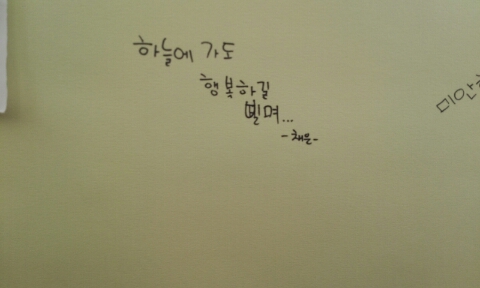 하늘에 가도
행복하길
빌며...
-채운-
미안